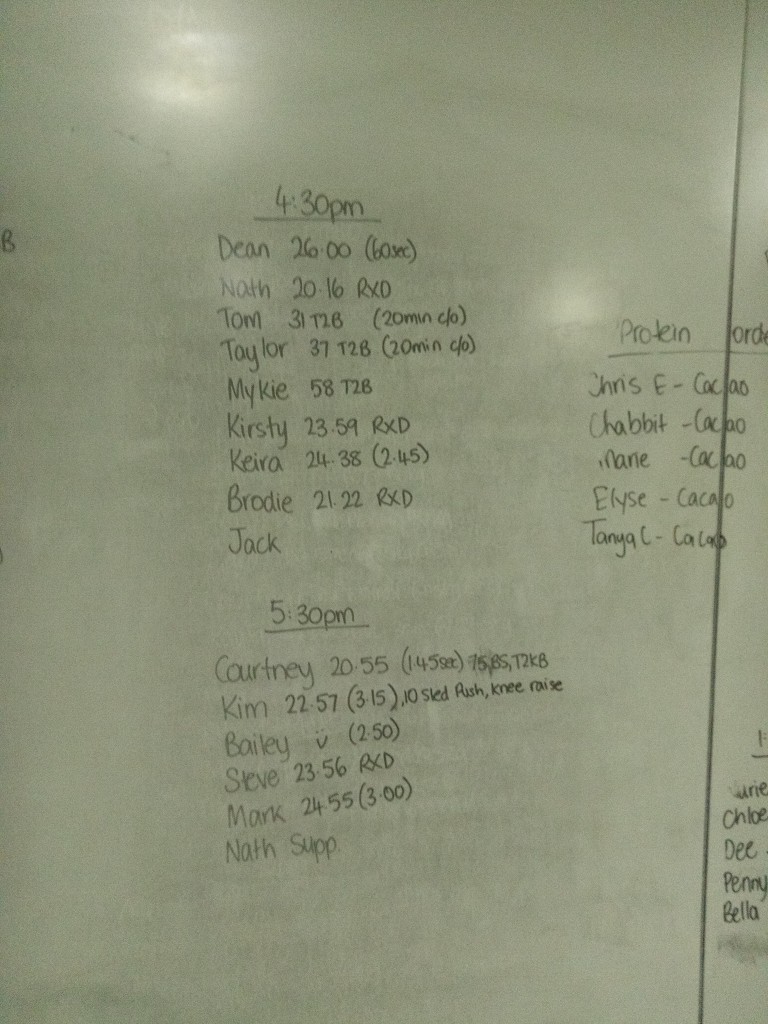 B
4:30pm
Dean 26.00 (60sec)
Nath 20.16 RXD
Tom 31 T2B (20min c/o)
Taylor 37 T2B (20min c/o)
Mykie 58 T2B
Kirsty 23.59 RXD
Keira 24.38 (2.45)
Brodie 21.22 RXD
Jack
5:30pm
Courtney 20.55 (1.45sec) 75,BS,T2KB
Kim 22.57 (3.15), 10 Sled Push, knee raise
Bailey (2.50)
Steve 23.56 RXD
Mark 24.55 (3.00)
Nath Supp
Protein orde
Chris E - Cacao
Chabbit - Cacao
- Cacao
Elyse - Cacao
Tanya C - Cacao
1:
urie
Chloe
Dee
Penny
Bella